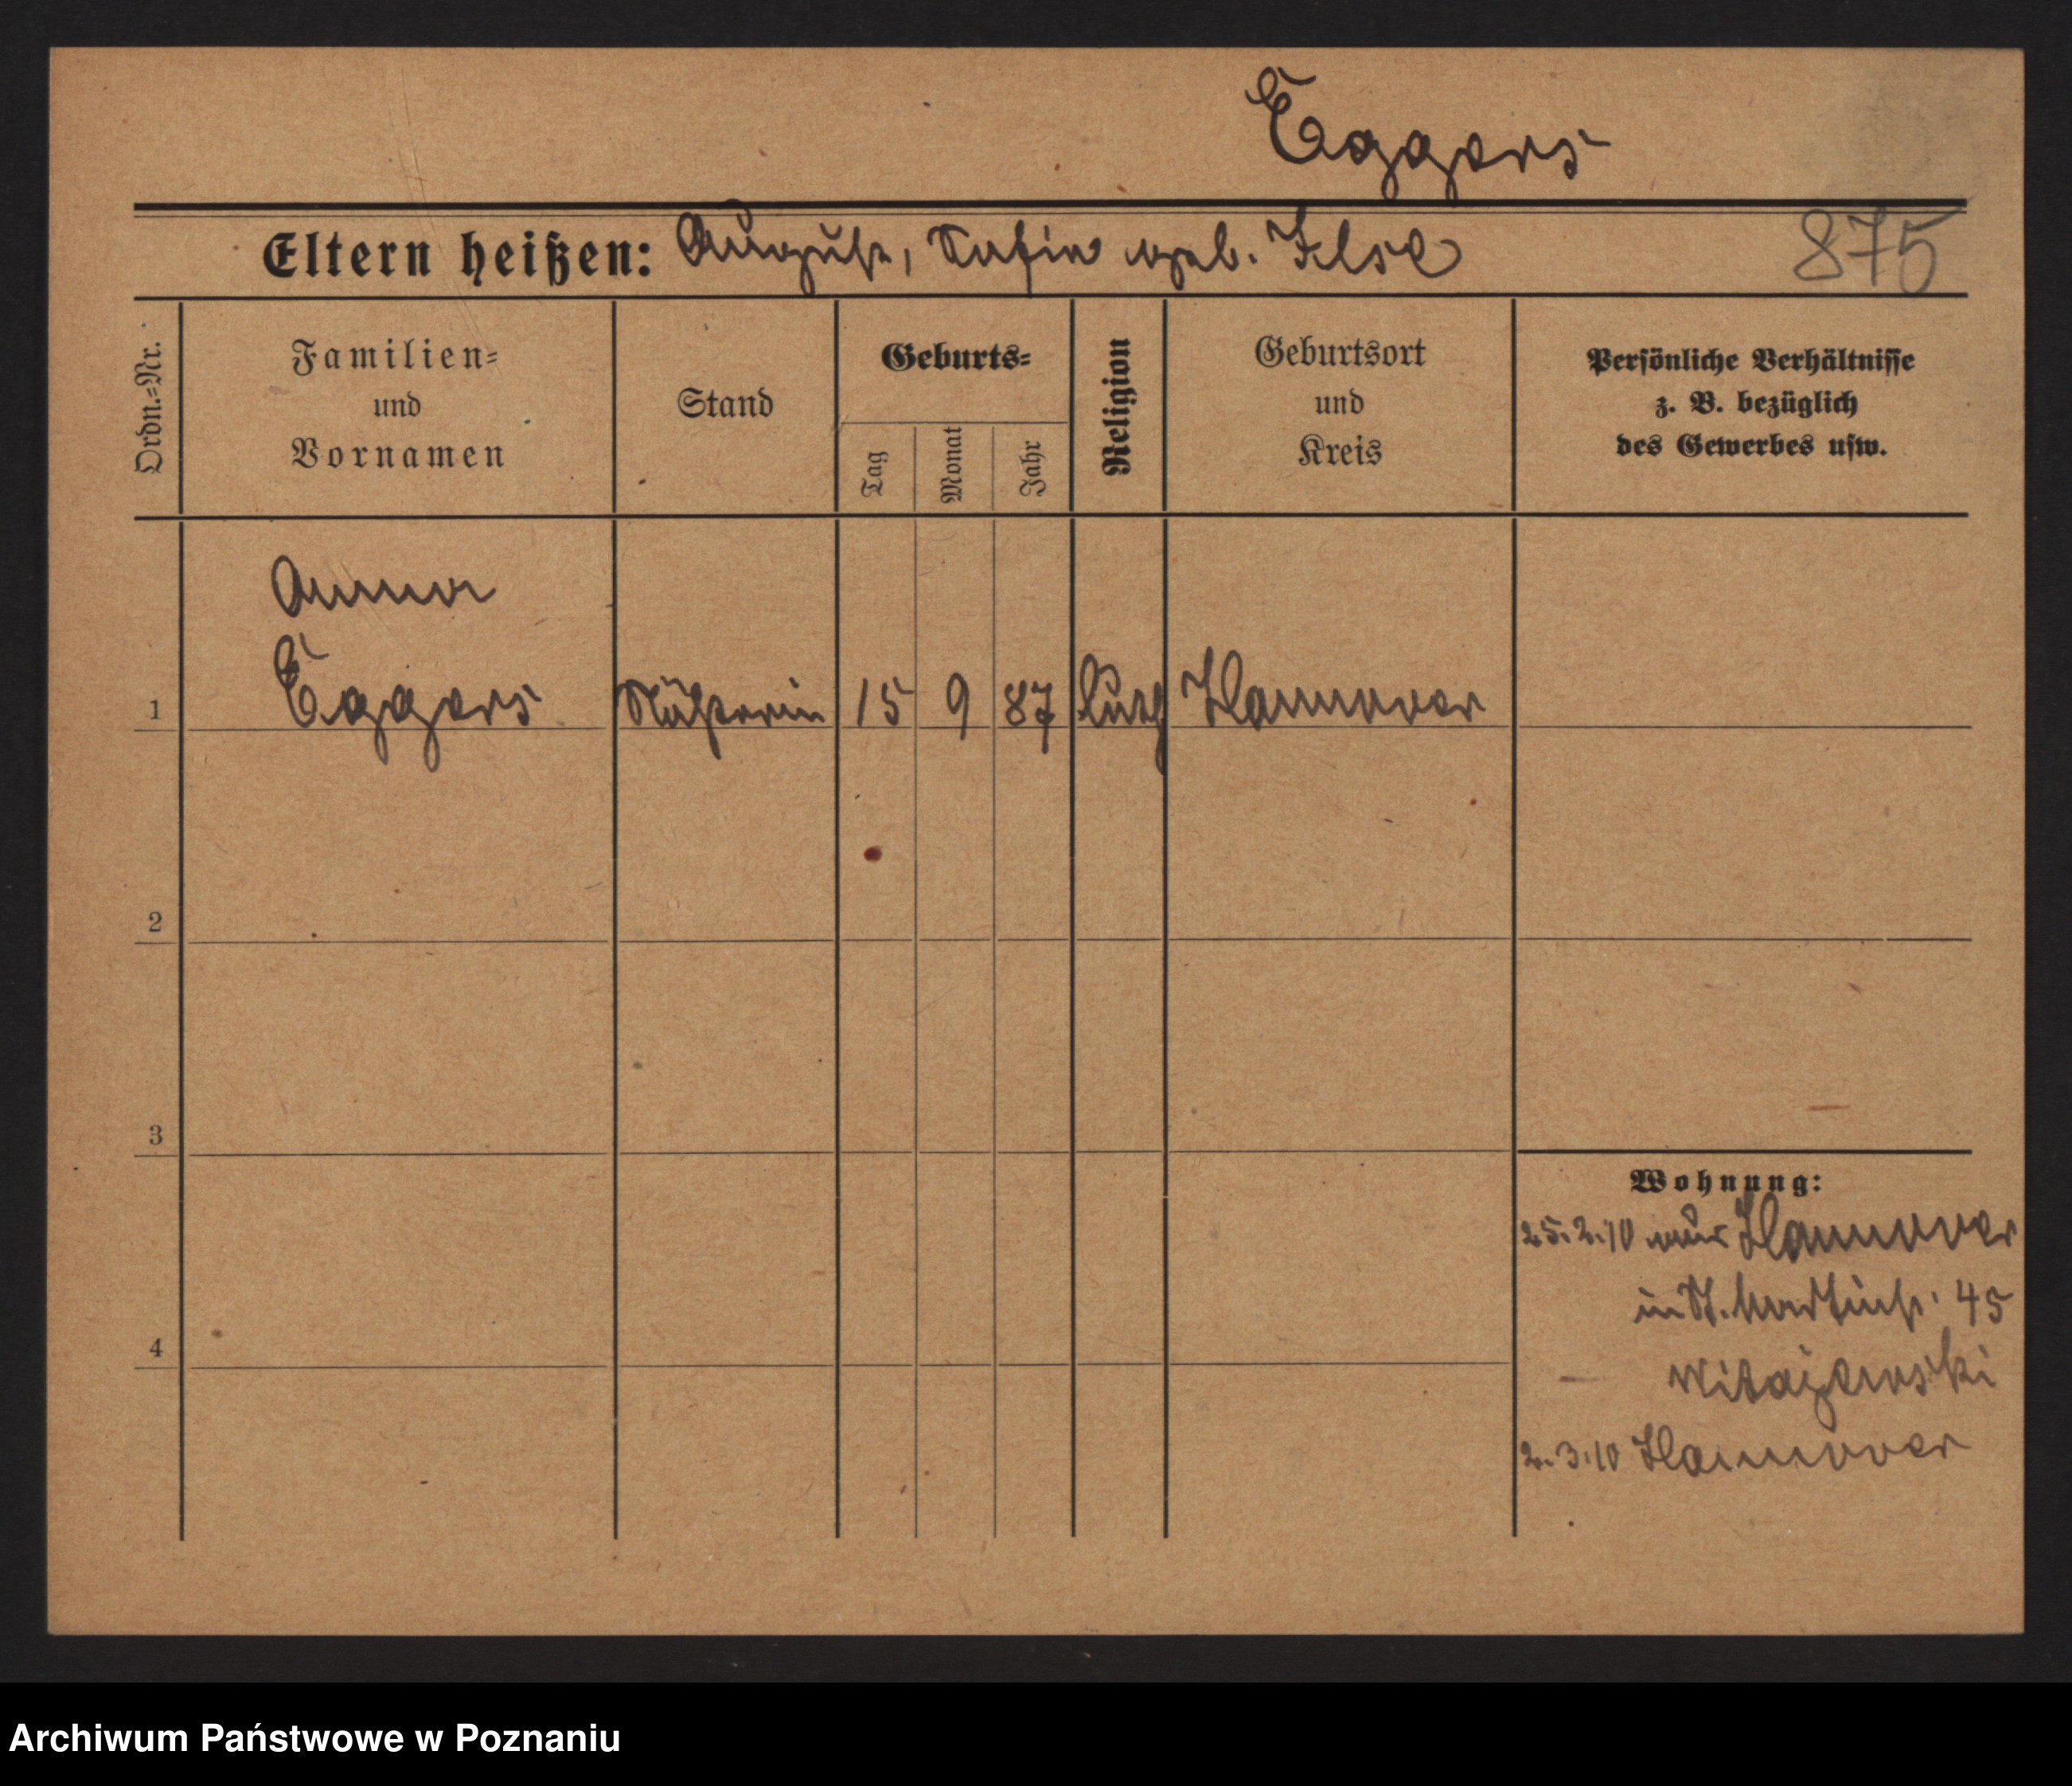 Eggers
Eltern heißen: August, Sofie geb. Ilse 875
Ordn.=Nr.
Familien=
und
Vornamen
Stand
Geburts=
Tag
Monat
Jahr
Religion
Geburtsort
und
Kreis
Persönliche Verhältnisse
z. B. bezüglich
des Gewerbes usw.
Anna
1 Eggers 15 9 87 luth Hannover
2
3
4
Wohnung:
25.2.10 aus Hannover
in St. Martinstr. 45
Witajewski
2.3.10 Hannover
Archiwum Państwowe w Poznaniu